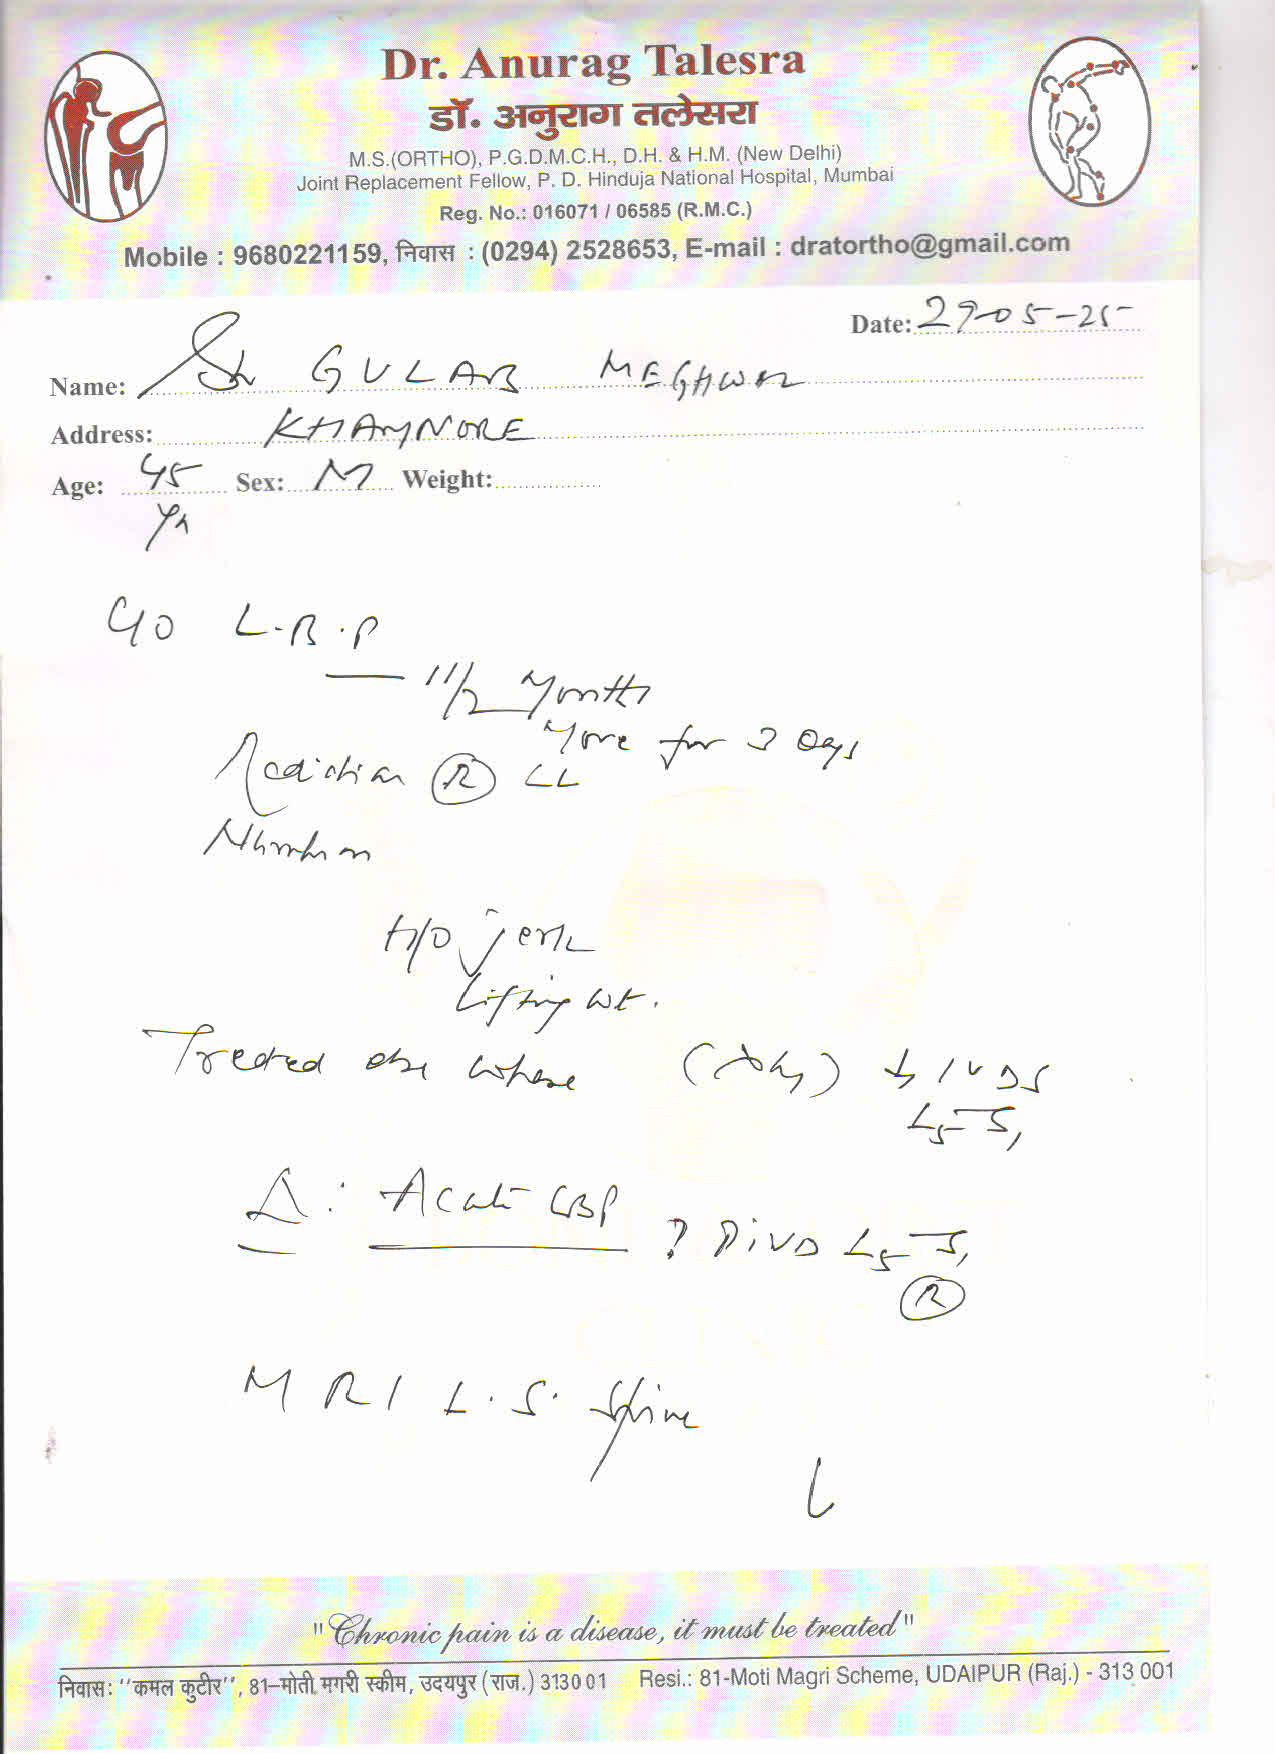 Dr. Anurag Talesra
डॉ. अनुराग तलेसरा
M.S.(ORTHO), P.G.D.M.C.H., D.H. & H.M. (New Delhi)
Joint Replacement Fellow, P. D. Hinduja National Hospital, Mumbai
Reg. No.: 016071 / 06585 (R.M.C.)
Mobile : 9680221159, निवास : (0294) 2528653, E-mail : dratortho@gmail.com
Date: 29-05-25
Name: Sh GULAB MEGHWAL
Address: KHAMNORE
Age: 45 Sex: M Weight:
Yr
C/O L.B.P
— 1 1/2 Month
More for 3 Days
Radiation (R) LL
Numbness
H/O jerk
Lifting wt.
Treated else where (Xray) ↓ IVDS
L5-S1
Δ : Acute LBP ? PIVD L5-S1
(R)
MRI L.S. Spine
"Chronic pain is a disease, it must be treated"
निवास: "कमल कुटीर", 81-मोती मगरी स्कीम, उदयपुर (राज.) 313001 Resi.: 81-Moti Magri Scheme, UDAIPUR (Raj.) - 313 001